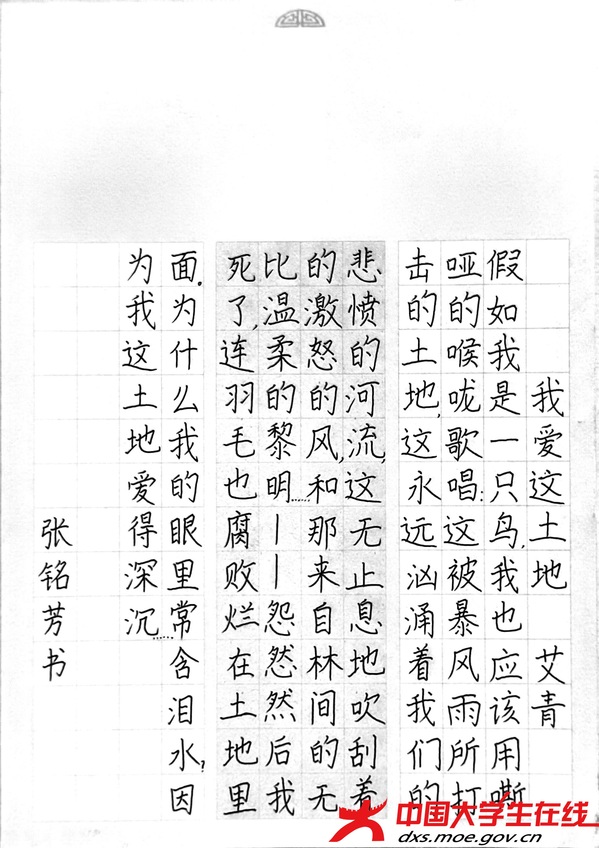 我爱这土地 艾青
假如我是一只鸟,我也应该用嘶
哑的喉咙歌唱:这被暴风雨所打
击的土地,这永远汹涌着我们的
悲愤的河流,这无止息地吹刮着
的激怒的风,和那来自林间的无
比温柔的黎明……——怨然然后我
死了,连羽毛也腐败烂在土地里
面。为什么我的眼里常含泪水?因
为我这土地爱得深沉……
张铭芳书
中国大学生在线
dxs.moe.gov.cn